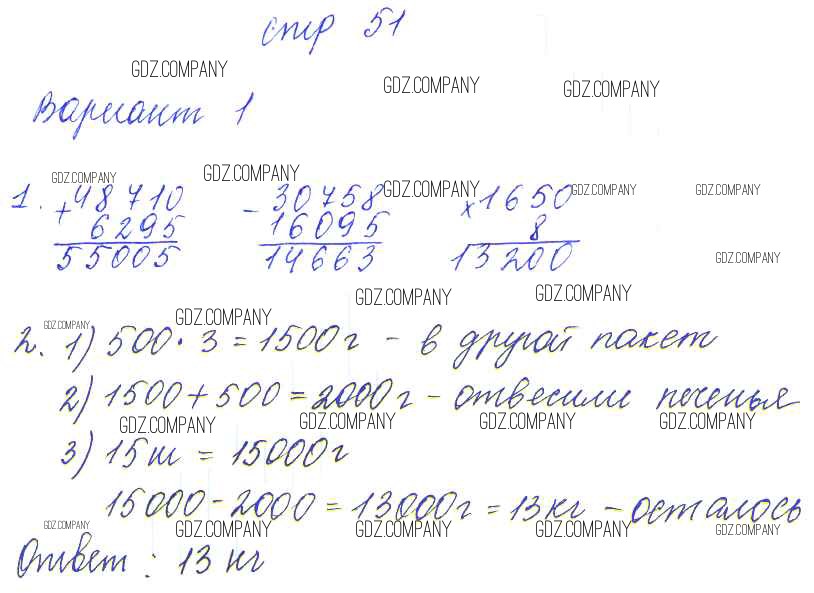 стр 51
GDZ.COMPANY
GDZ.COMPANY
GDZ.COMPANY
Вариант 1
GDZ.COMPANY GDZ.COMPANY GDZ.COMPANY GDZ.COMPANY GDZ.COMPANY
1. + 48710 - 30758 x 1650
6295 16095 8
55005 14663 13200
GDZ.COMPANY
GDZ.COMPANY GDZ.COMPANY
GDZ.COMPANY GDZ.COMPANY
2. 1) 500 · 3 = 1500 г - в другой пакет
2) 1500 + 500 = 2000 г - отвесили печенья
GDZ.COMPANY GDZ.COMPANY GDZ.COMPANY GDZ.COMPANY
3) 15 кг = 15000 г
15000 - 2000 = 13000 г = 13 кг - осталось
GDZ.COMPANY GDZ.COMPANY GDZ.COMPANY GDZ.COMPANY GDZ.COMPANY
Ответ: 13 кг